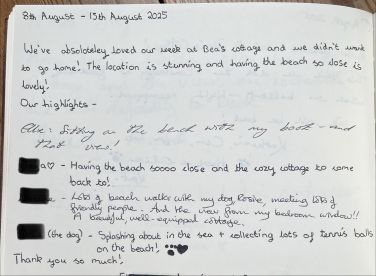 8th August - 15th August 2025
We've absoloteley loved our week at Bea's cottage and we didn't want
to go home! The location is stunning and having the beach so close is
lovely!
Our highlights -
Sitting on the beach with my book - and
that view!
a♡ - Having the beach soooo close and the cozy cottage to come
back to!
e - Lots of beach walks with my dog, Rosie, meeting lots of
friendly people. And the view from my bedroom window!!
A beautiful, well-equipped cottage.
(the dog) - Splashing about in the sea + collecting lots of tennis balls
on the beach!
Thank you so much!